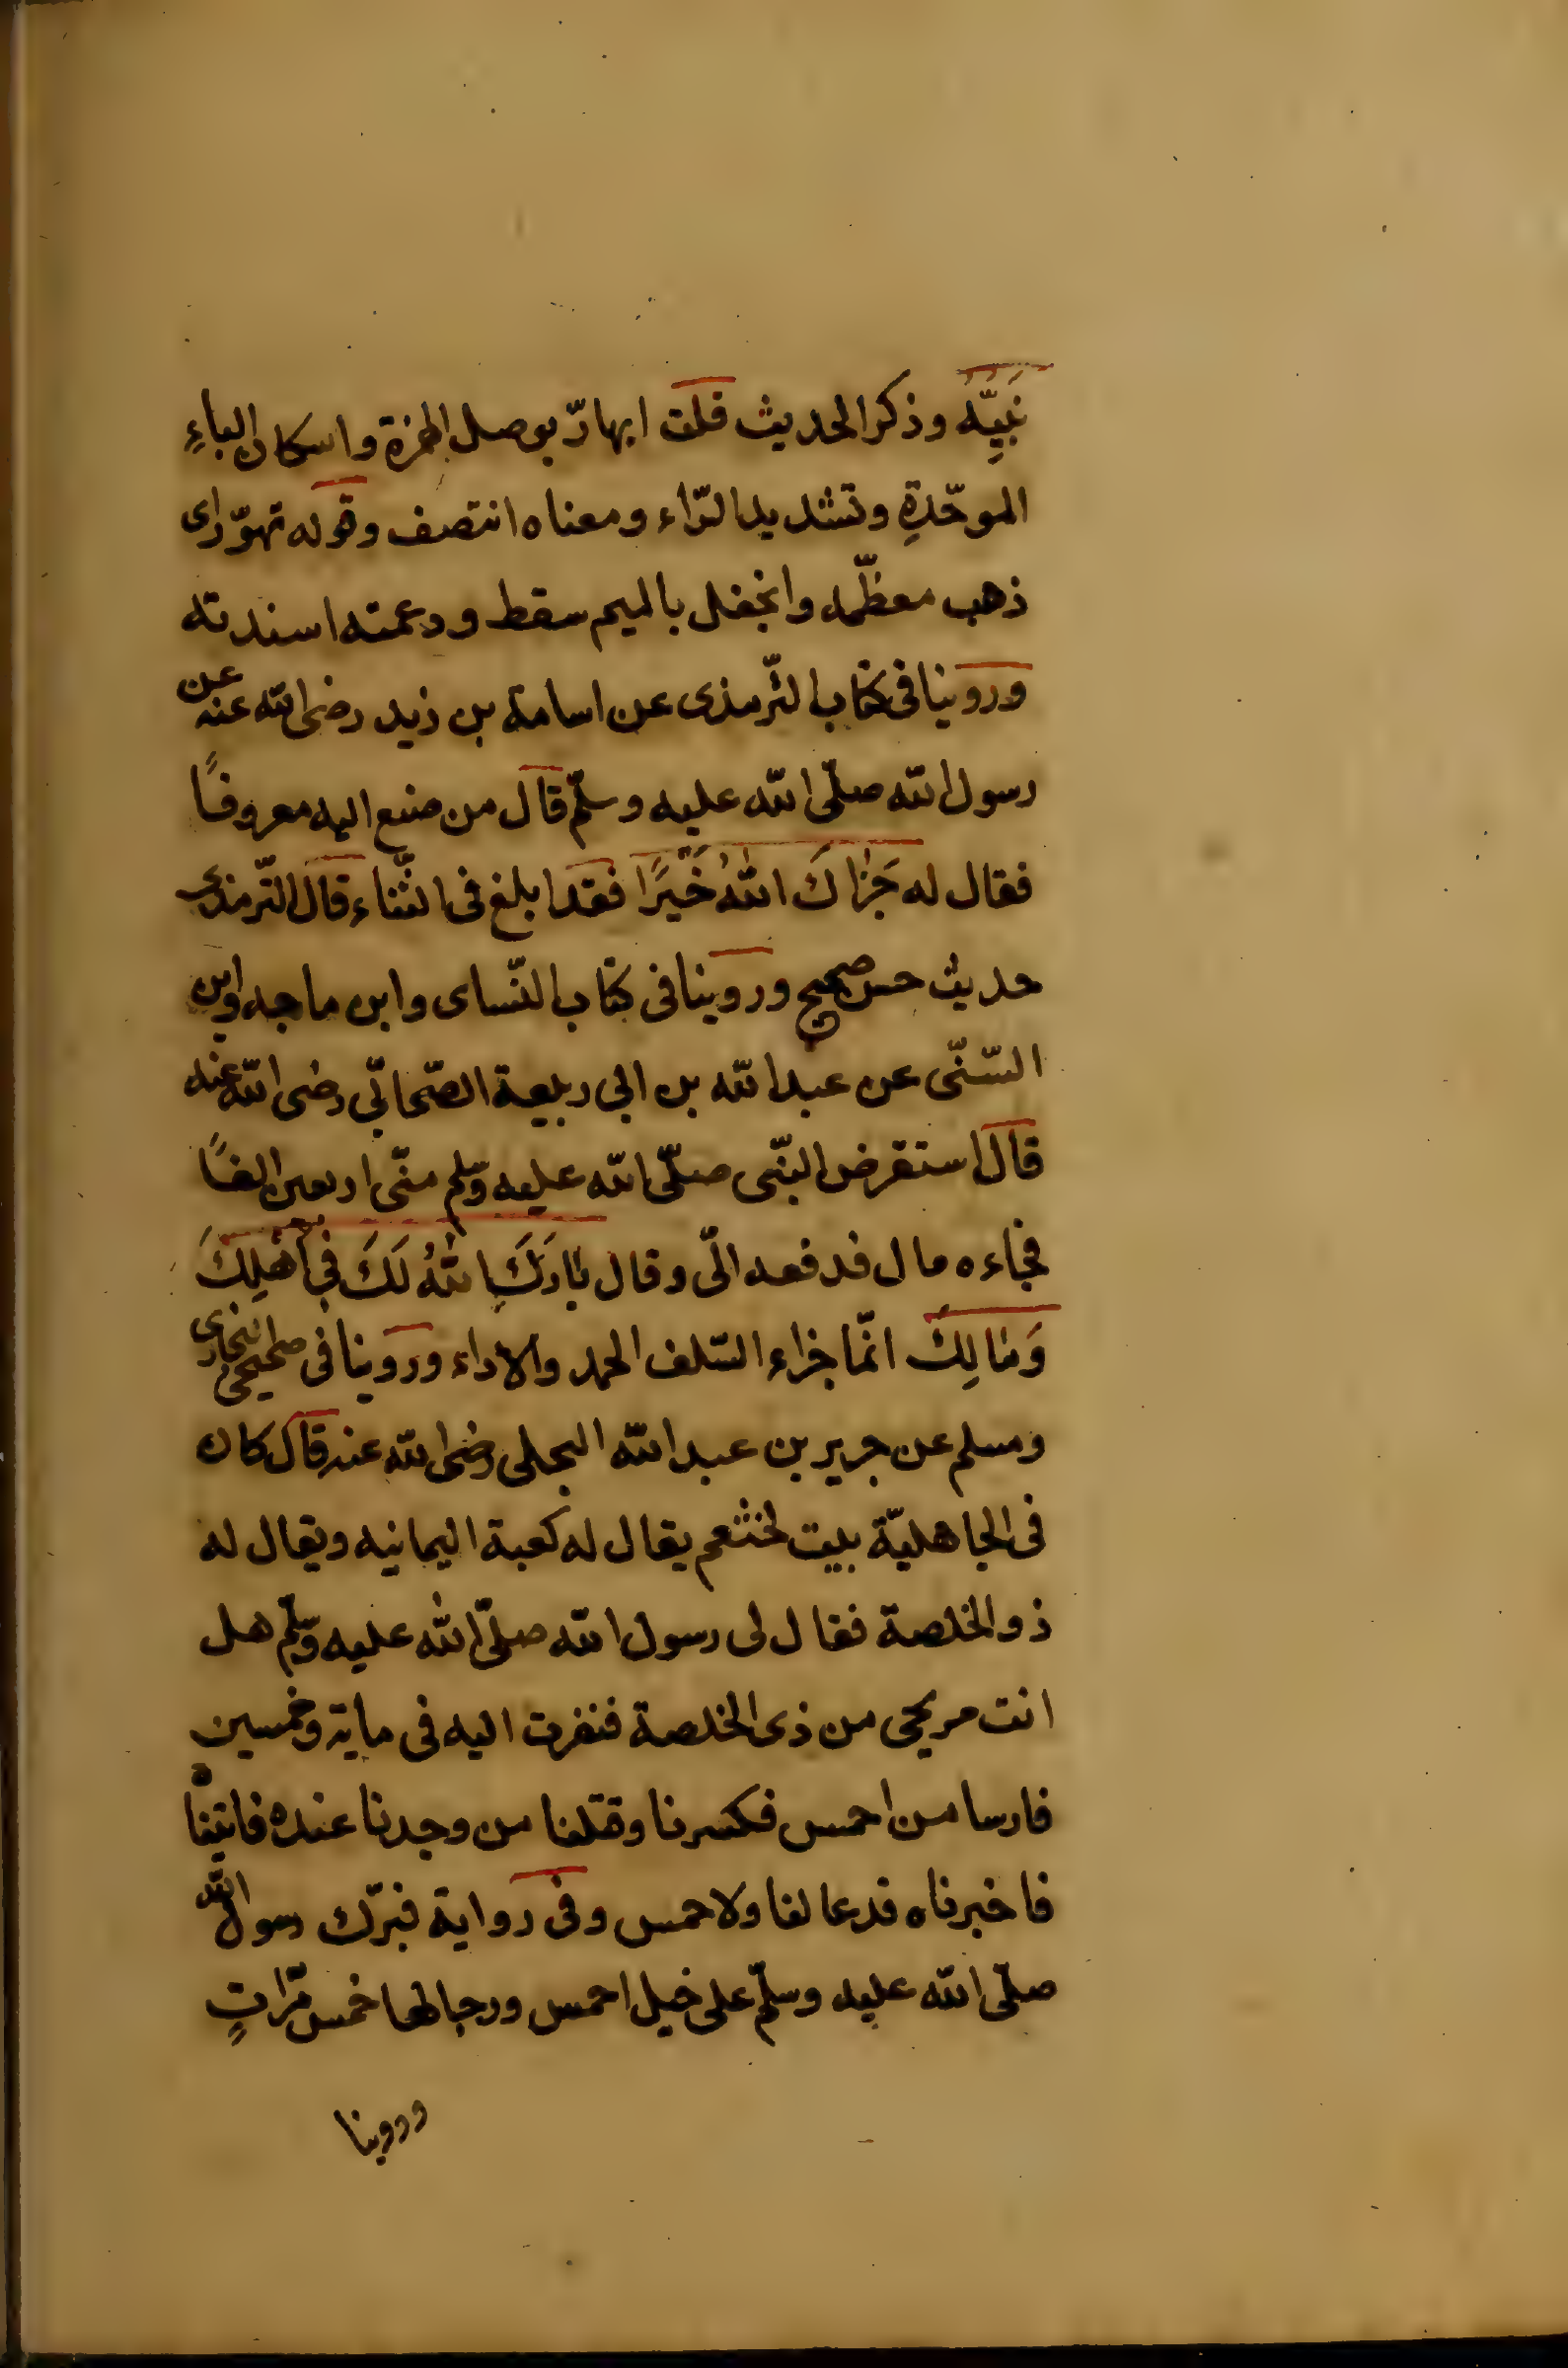 نَبِيَّهُ وذكر الحديث قلت ابهارّ بوصل الهمزة واسكان الباءِ
الموحّدةِ وتشديد الرّاء ومعناه انتصف وقوله تهوّر اى
ذهب معظّمه وانجفل بالميم سقط ودعمته اسندته
وروينا فى كتاب الترّمذى عن اسامة بن زيد رضى الله عنه عن
رسول الله صلّى الله عليه وسلّم قال من صنع اليه معروفًا
فقال له جَزاكَ اللهُ خَيْرًا فقد ابلغ فى الثّناء قال التّرمذى
حديث حسن صحيح وروينا فى كتاب النّساى وابن ماجه وابن
السّنّى عن عبد الله بن ابى ربيعة الصّحابّى رضى الله عنه
قال استقرض النبّى صلّى الله عليه وسلّم منّى اربعين الفًا
فجاءه مال فدفعه الّى وقال بارَكَ اللهُ لَكَ فى اَهْلِكَ
وَمالِكَ انّما جزاء السّلف الحمد والاداء وروينا فى صحيحى البخارى
ومسلم عن جرير بن عبد الله البجلى رضى الله عنه قال كان
فى الجاهليّة بيت لخثعم يقال له كعبة اليمانيه ويقال له
ذو الخلصة فقال لى رسول الله صلّى الله عليه وسلّم هل
انت مريحى من ذى الخلصة فنفرت اليه فى ماية وخمسين
فارسا من احمس فكسرنا وقتلنا من وجدنا عنده فاتيناه
فاخبرناه فدعا لنا ولاحمس وفى رواية فبرّك رسول الله
صلّى الله عليه وسلّم على خيل احمس ورجالها خمس مّراتٍ
وروينا